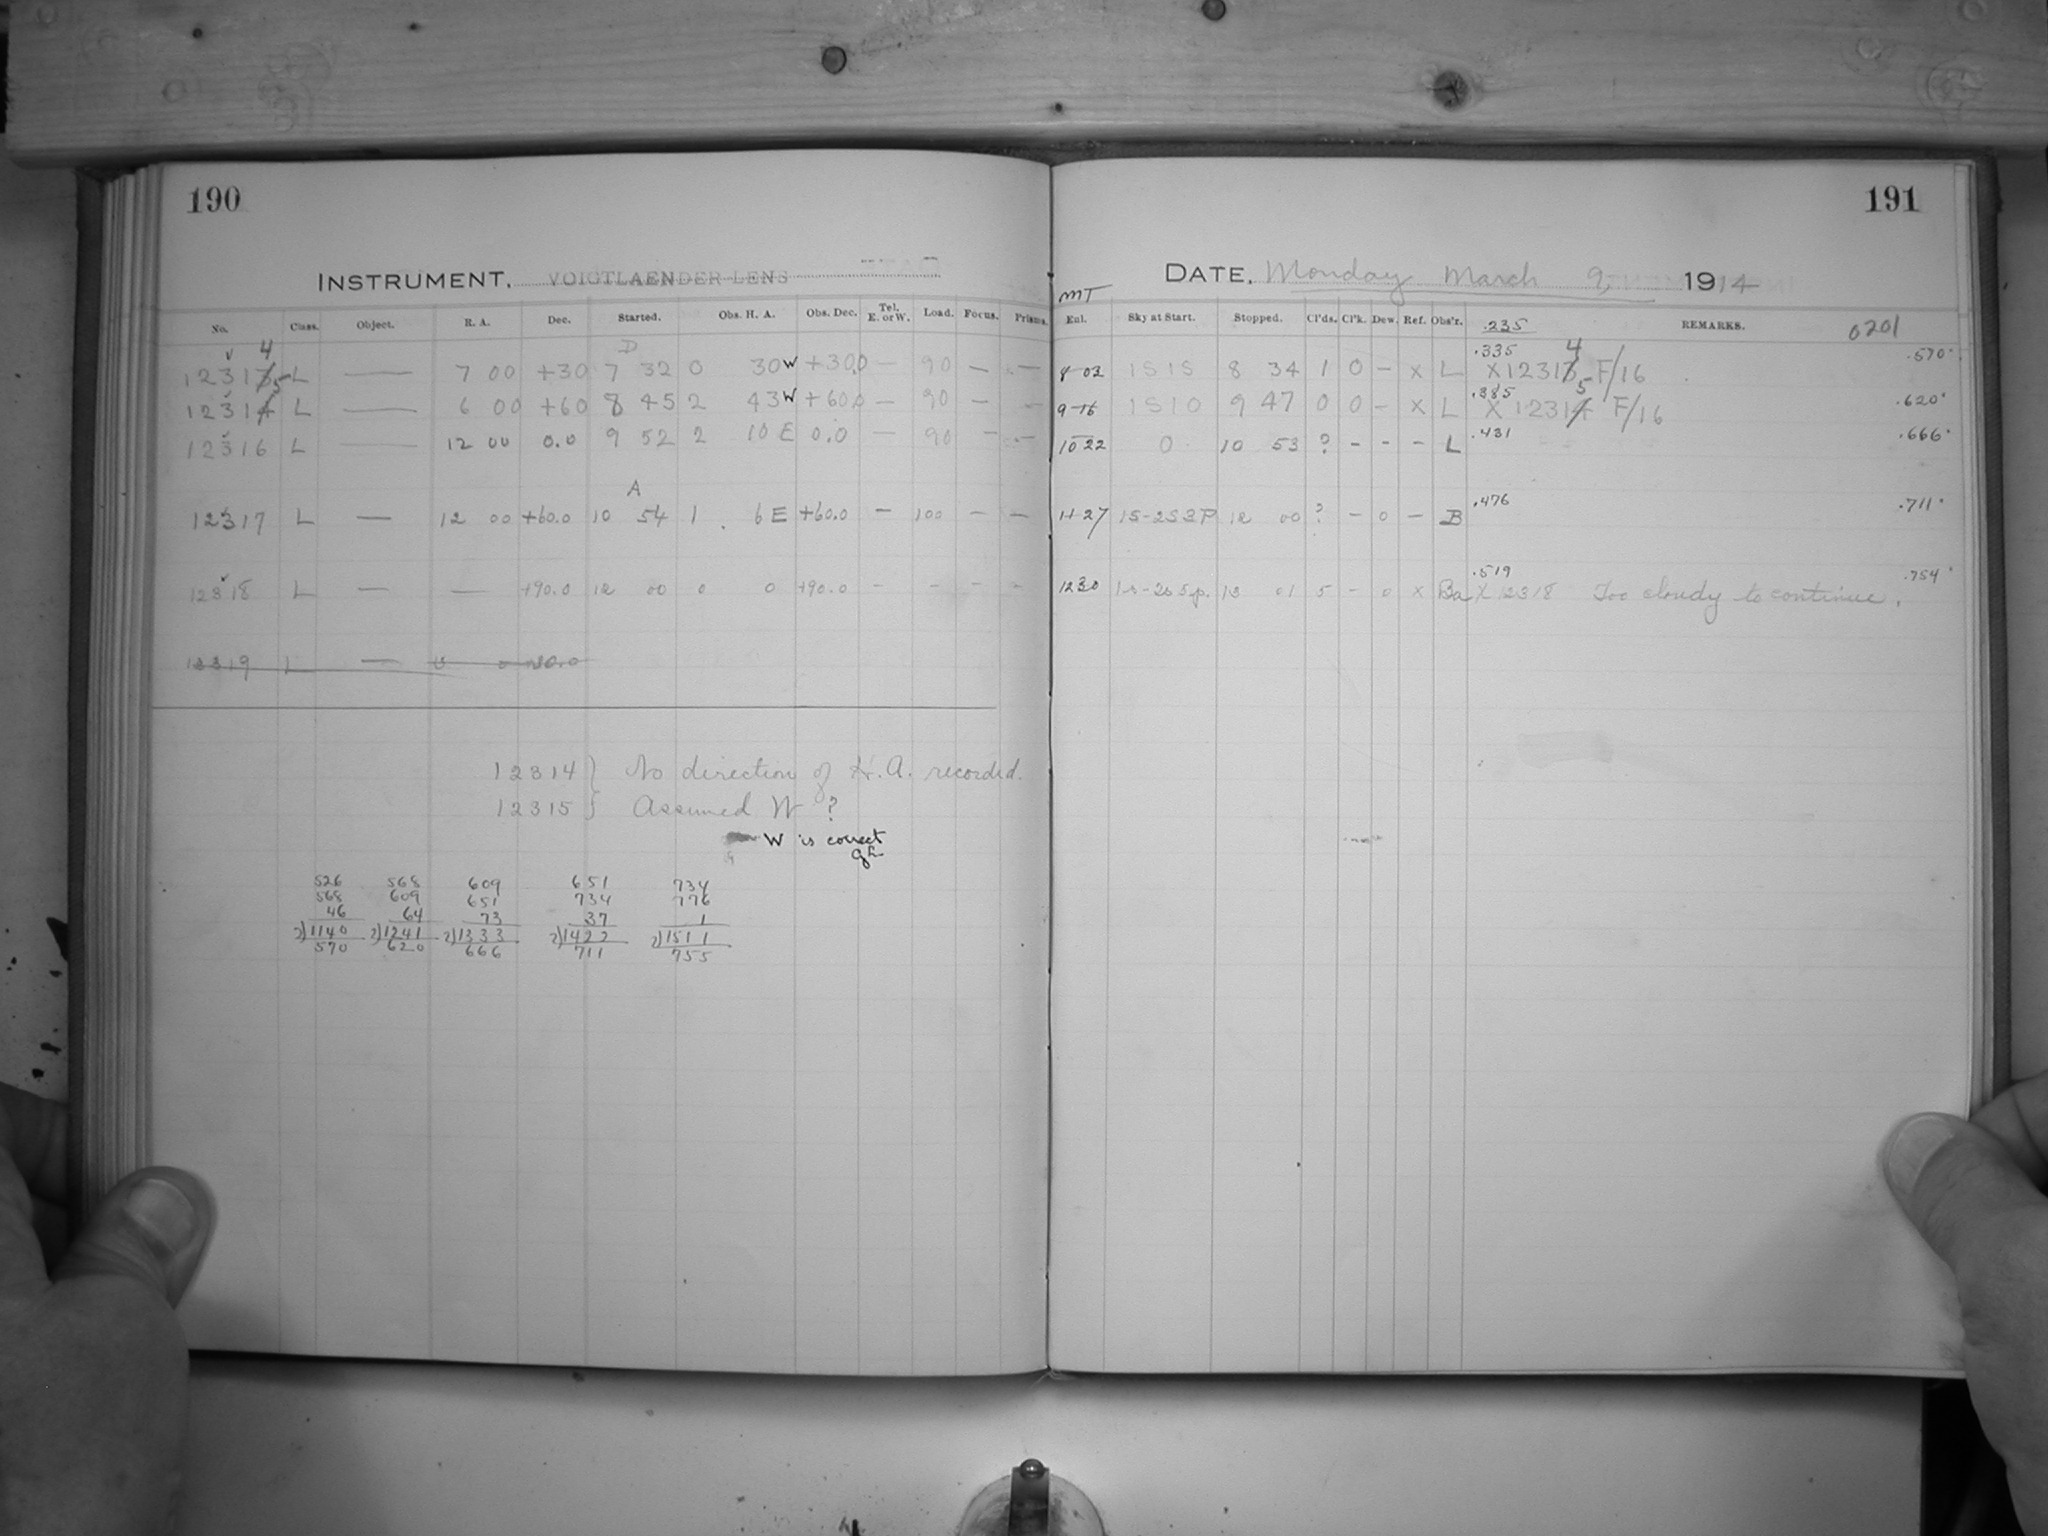 190
191
INSTRUMENT. VOIGTLAENDER LENS
DATE, Monday March 9, 1914
No. Class. Object. R. A. Dec. Started. Obs. H. A. Obs. Dec. Tel. E. or W. Load. Focus. Prisms.
MT
Eul. Sky at Start. Stopped. Cl'ds. Cl'k. Dew. Ref. Obs'r. .235 REMARKS. 0201
D
4
12313 L — 7 00 +30 7 32 0 30 W +30.0 — 90 — —
8 02 1S1S 8 34 1 0 — X L .335 X 12313 4 F/16 .570
5
12314 L — 6 00 +60 8 45 2 43 W +60.0 — 90 — —
9 16 1S10 9 47 0 0 — X L .385 X 12314 5 F/16 .620
12316 L — 12 00 0.0 9 52 2 10 E 0.0 — 90 — —
10 22 0 10 53 ? - - - L .431 .666
A
12317 L — 12 00 +60.0 10 54 1 6 E +60.0 — 100 — —
11 27 1S-2S2P 12 00 ? - 0 - B .476 .711
12318 L — — +90.0 12 00 0 0 +90.0 - - - -
12 30 1s-2s5p. 13 01 5 - 0 X Ba .519 X 12318 Too cloudy to continue. .754
12319 L —
12314 } No direction of H. A. recorded.
12315 } Assumed W ?
W is correct
526 568 609 651 734
568 609 651 734 776
46 64 73 37 1
2)1140 2)1241 2)1333 2)1422 2)1511
570 620 666 711 755